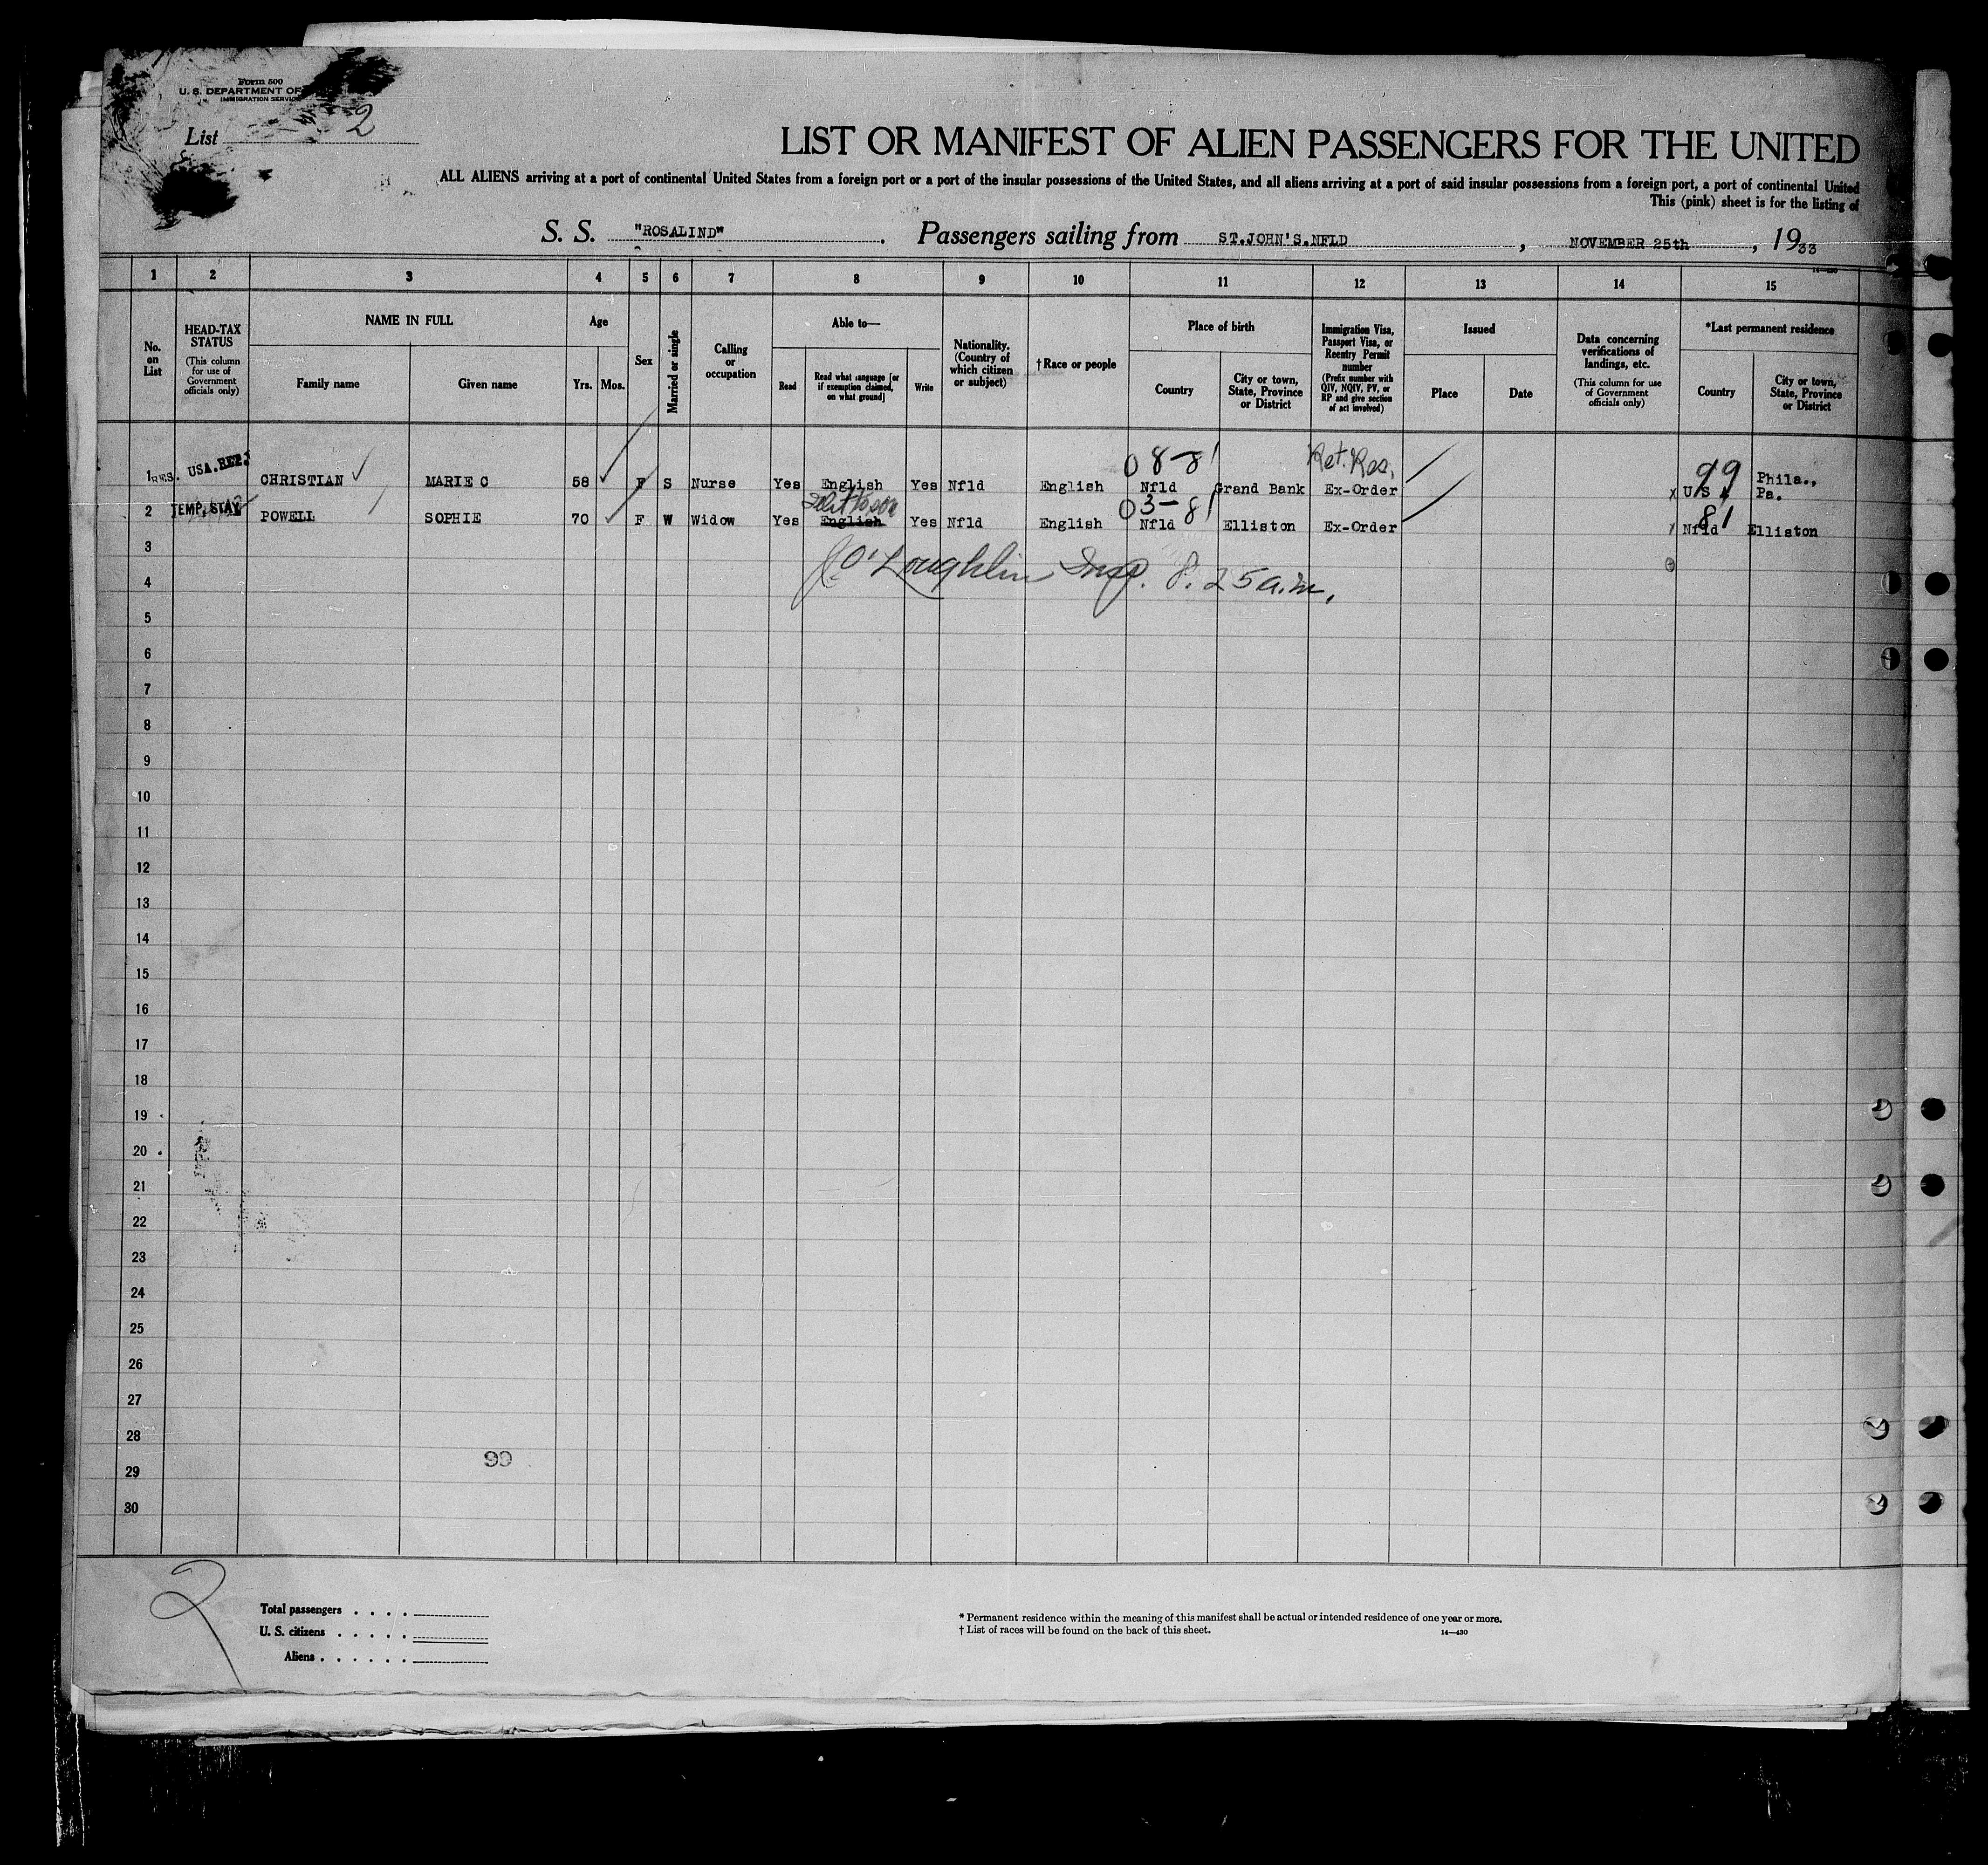 Form 500
U. S. DEPARTMENT OF
IMMIGRATION SERVICE
List 2
LIST OR MANIFEST OF ALIEN PASSENGERS FOR THE UNITED
ALL ALIENS arriving at a port of continental United States from a foreign port or a port of the insular possessions of the United States, and all aliens arriving at a port of said insular possessions from a foreign port, a port of continental United
This (pink) sheet is for the listing of
S. S. "ROSALIND". Passengers sailing from ST.JOHN'S.NFLD, NOVEMBER 25th, 1933
14—430
1 2 3 4 5 6 7 8 9 10 11 12 13 14 15
No. on List
HEAD-TAX STATUS (This column for use of Government officials only)
NAME IN FULL
Family name
Given name
Age
Yrs. Mos.
Sex
Married or single
Calling or occupation
Able to—
Read
Read what language [or if exemption claimed, on what ground]
Write
Nationality. (Country of which citizen or subject)
†Race or people
Place of birth
Country
City or town, State, Province or District
Immigration Visa, Passport Visa, or Reentry Permit number (Prefix number with QIV, NQIV, PV, or RP and give section of act involved)
Issued
Place
Date
Data concerning verifications of landings, etc. (This column for use of Government officials only)
*Last permanent residence
Country
City or town, State, Province or District
08-81 Ret. Res. 99
1 RES. USA. CHRISTIAN MARIE C 58 F S Nurse Yes English Yes Nfld English Nfld Grand Bank Ex-Order x U S A Phila., Pa.
03-81 81
2 TEMP. STAY POWELL SOPHIE 70 F W Widow Yes English Yes Nfld English Nfld Elliston Ex-Order x Nfld Elliston
3
O'Loughlin Insp. 8.25 a.m.
4
5
6
7
8
9
10
11
12
13
14
15
16
17
18
19
20
21
22
23
24
25
26
27
28
29
30
2
Total passengers . . . .
U. S. citizens . . . . .
Aliens . . . . . .
* Permanent residence within the meaning of this manifest shall be actual or intended residence of one year or more.
† List of races will be found on the back of this sheet.
14—430